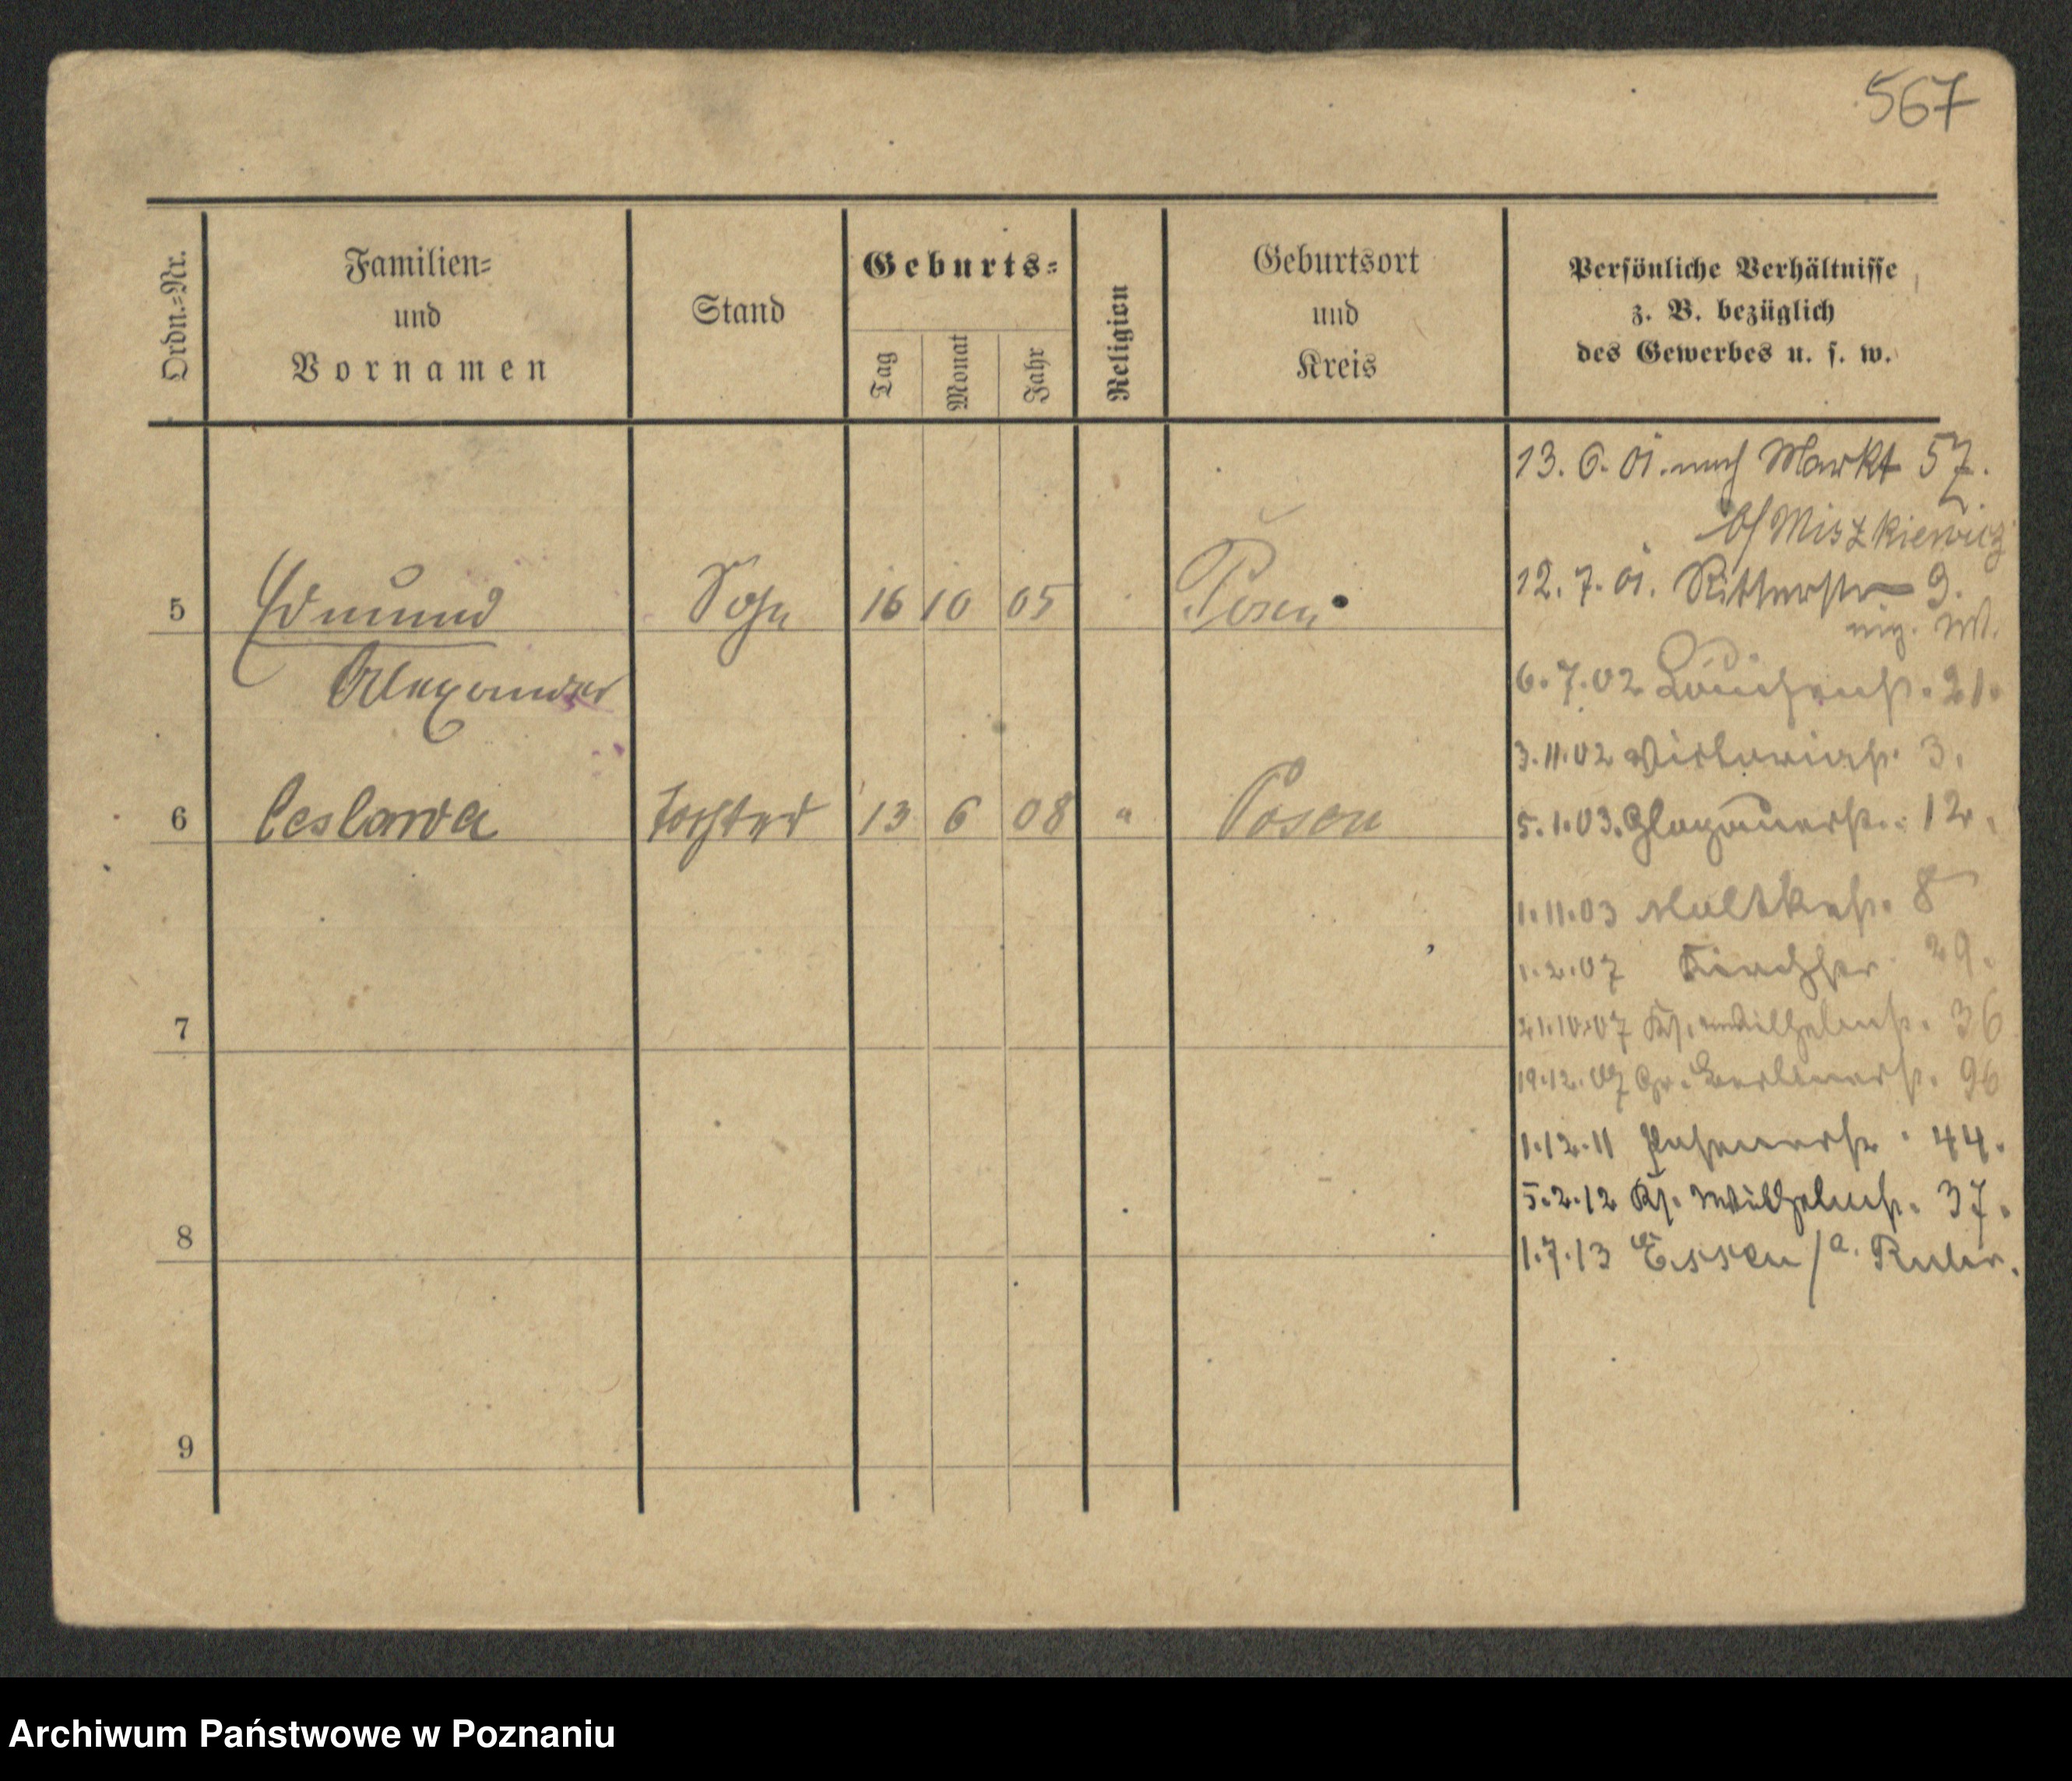 567
Ordn.-Nr.
Familien-
und
Vornamen
Stand
Geburts-
Tag
Monat
Jahr
Religion
Geburtsort
und
Kreis
Persönliche Verhältnisse
z. B. bezüglich
des Gewerbes u. s. w.
13. 6. 01. nach Markt 57.
b/ Miszkiewicz
5 Edmund Sohn 16 10 05 Posen
12. 7. 01. Ritterstr 9.
Alexander
6. 7. 02 Louisenst. 21.
3. 11. 02 Victoriast. 3.
6 Ceslawa Tochter 13 6 08 " Posen
5. 1. 03. Glogauerst. 12.
1. 11. 03 Moltkest. 8
1. 2. 07 29.
7
21. 10. 07 Kr. Wilhelmst. 36
19. 12. 07 Gr. Berlinerst. 96
1. 12. 11 Posenerstr. 44.
5. 2. 12 Kr. Wilhelmst. 37.
8
1. 7. 13 Essen / a. Ruhr.
9
Archiwum Państwowe w Poznaniu